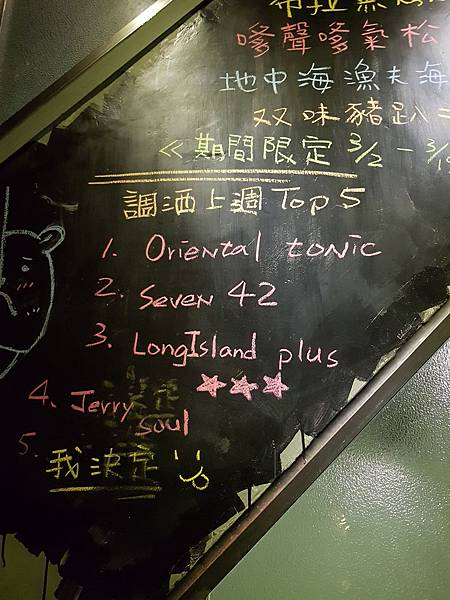 嗲聲嗲氣松
地中海漁夫海
双味豬趴
≪期間限定 3/2 - 3/1
調酒上週 Top 5
1. Oriental tonic
2. Seven 42
3. LongIsland plus
★★★
4. Jerry Soul
5.
我決定